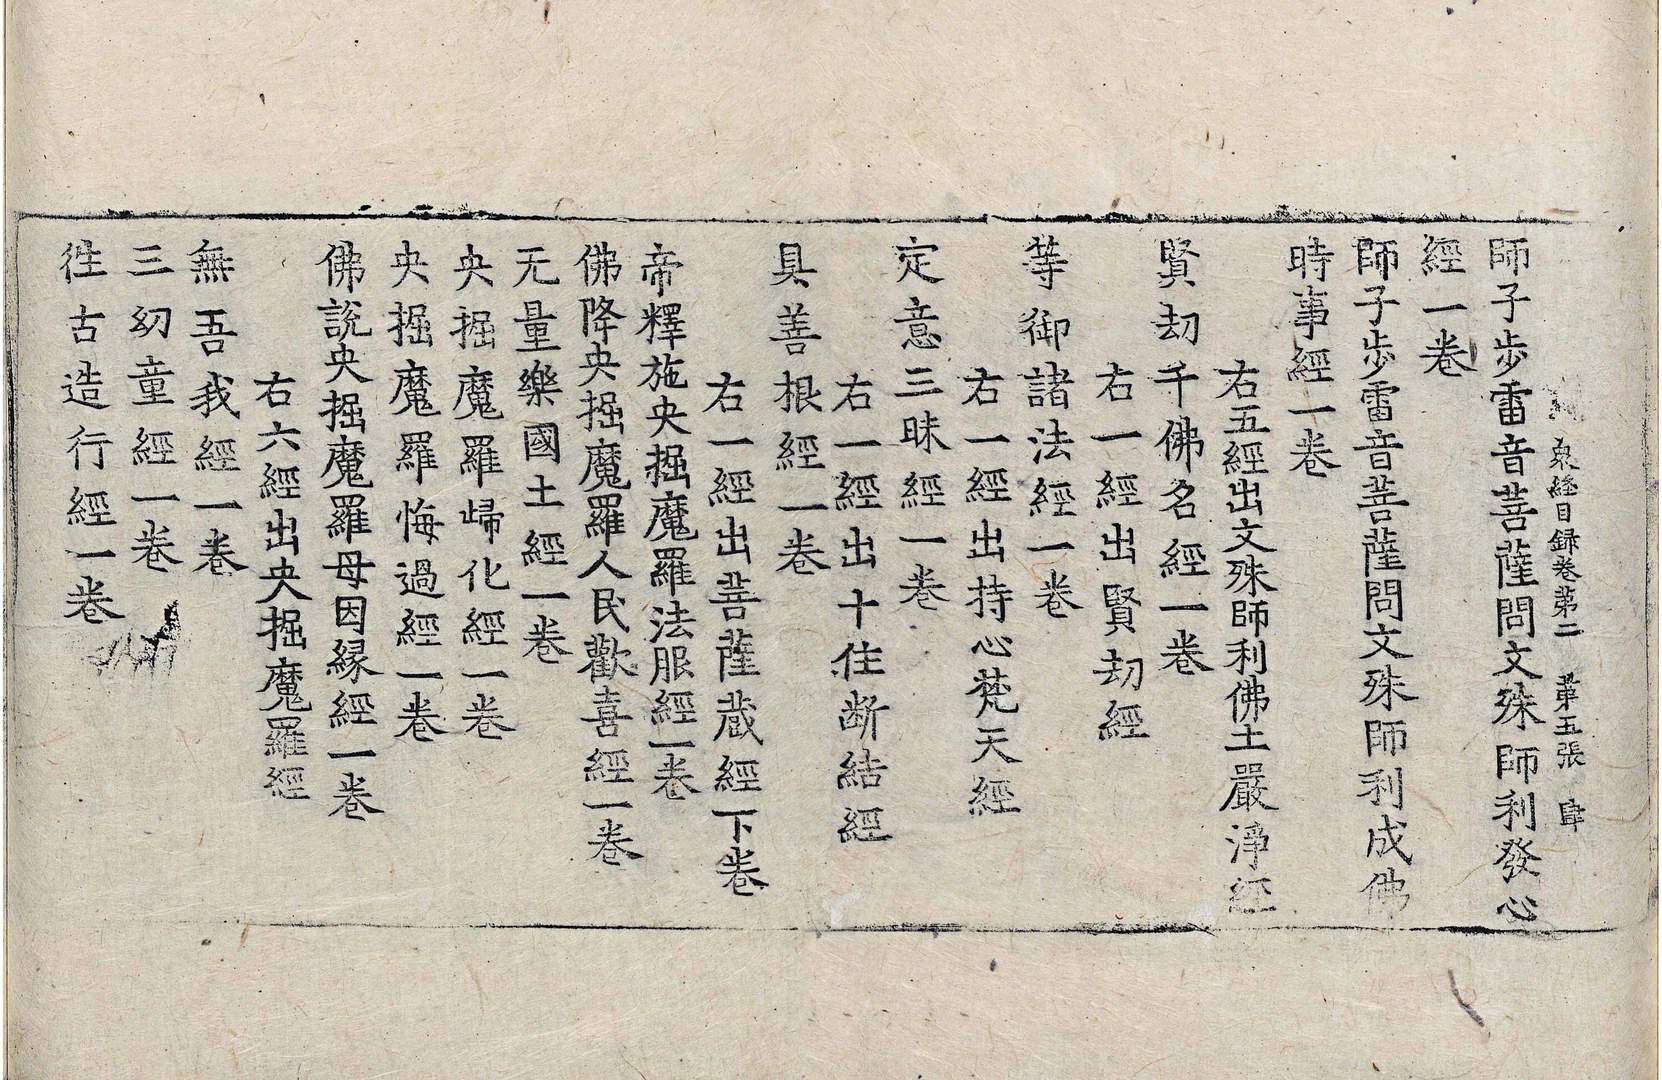 衆經目録卷第二 第五張
師子步雷音菩薩問文殊師利發心
經一卷
師子步雷音菩薩問文殊師利成佛
時事經一卷
右五經出文殊師利佛土嚴淨經
賢劫千佛名經一卷
右一經出賢劫經
等御諸法經一卷
右一經出持心梵天經
定意三昧經一卷
右一經出十住断結經
具善根經一卷
右一經出菩薩蔵經下卷
帝釋施央掘魔羅法服經一卷
佛降央掘魔羅人民歡喜經一卷
无量樂國土經一卷
央掘魔羅歸化經一卷
央掘魔羅悔過經一卷
佛説央掘魔羅母因緣經一卷
右六經出央掘魔羅經
無吾我經一卷
三幼童經一卷
徃古造行經一卷